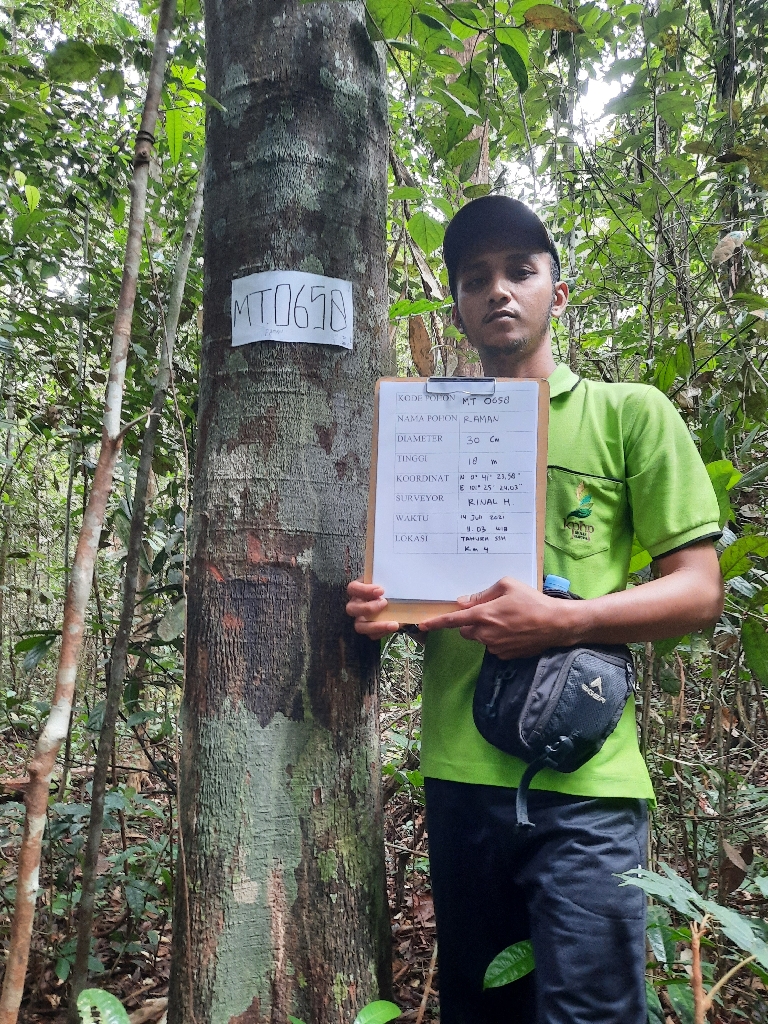 MT.0658
KODE POHON MT 0658
NAMA POHON RAMAN
DIAMETER 30 Cm
TINGGI 18 m
KOORDINAT N 0° 41' 23.58"
E 101° 25' 24.03"
SURVEYOR RINAL H
WAKTU 14 Juli 2021
11.03 WIB
LOKASI TAHURA SSH
Km 4
kphp
EIGER